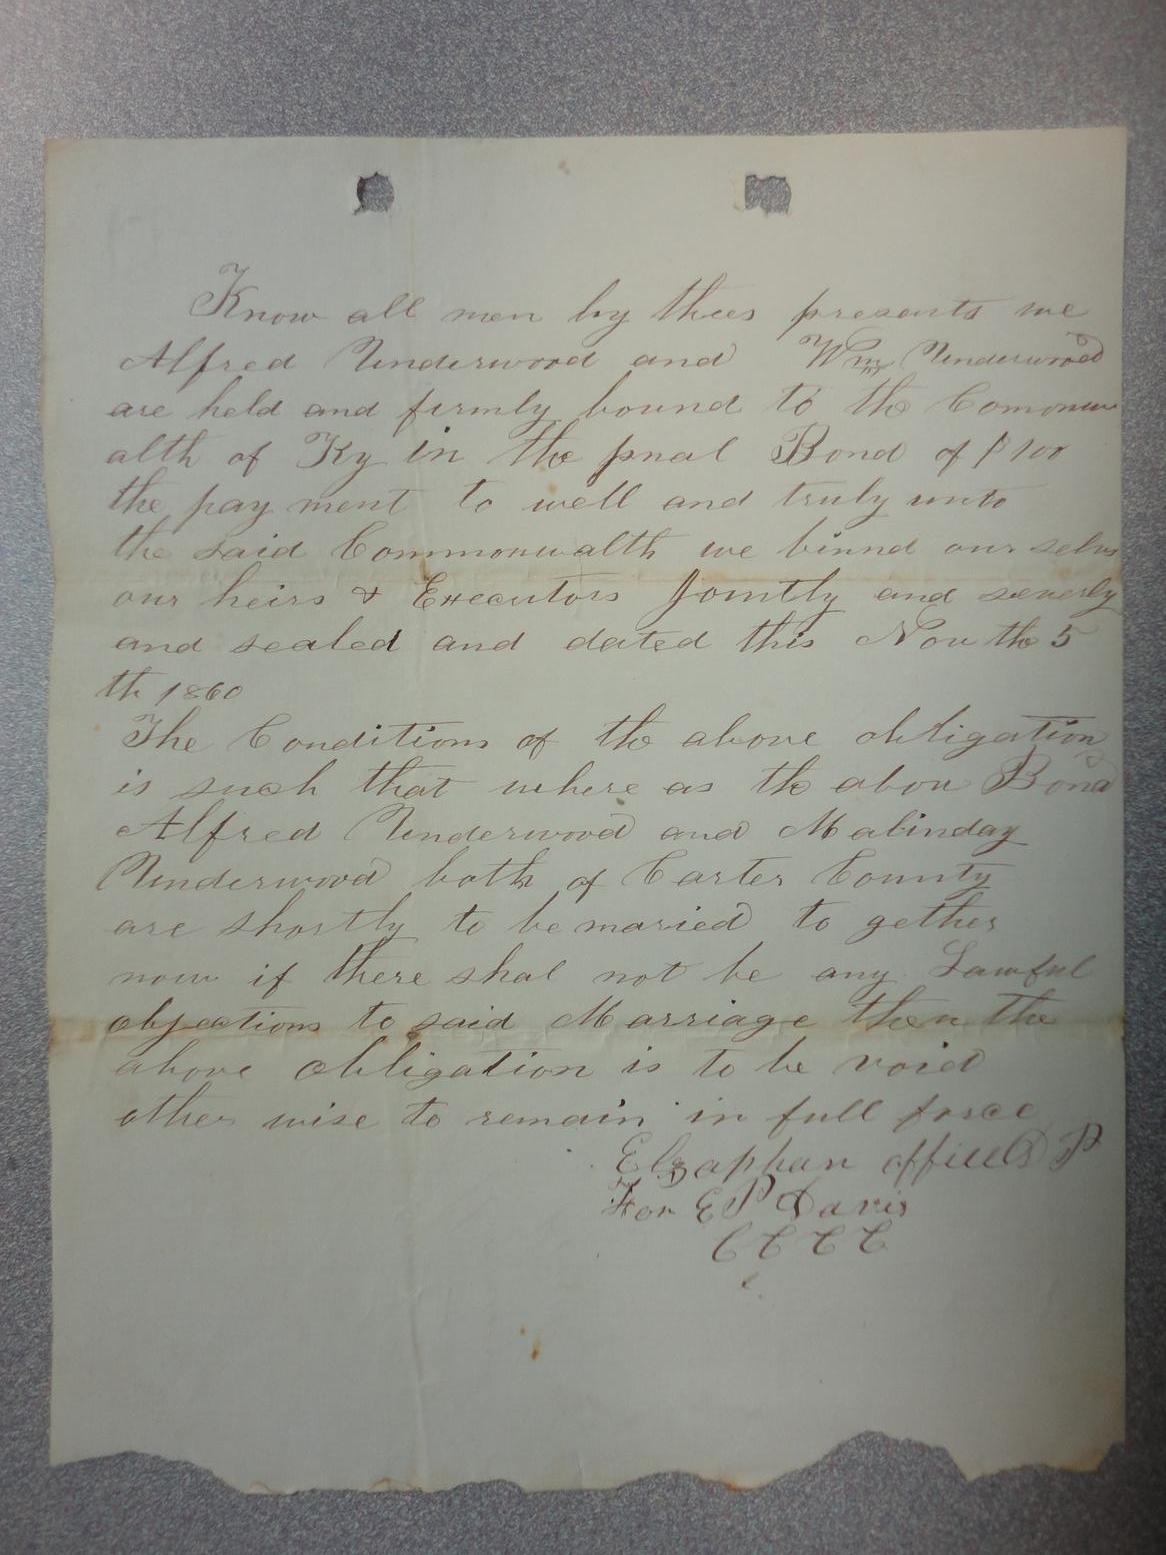 Know all men by thees presents we
Alfred Underwood and Wm Underwood
are held and firmly bound to the Comonw
alth of Ky in the pnal Bond of $100
the pay ment to well and truly unto
the said Commonwalth we binnd our selvs
our heirs & Executors Jointly and severly
and sealed and dated this Nov the 5
th 1860
The Conditions of the above obligation
is such that where as the abov Bond
Alfred Underwood and Malinday
Underwood both of Carter County
are shortly to be maried to gether
now if there shal not be any Lawful
objections to said Marriage then the
above obligation is to be void
other wise to remain in full force
Elzaphan P
For E P Davis
C C C C